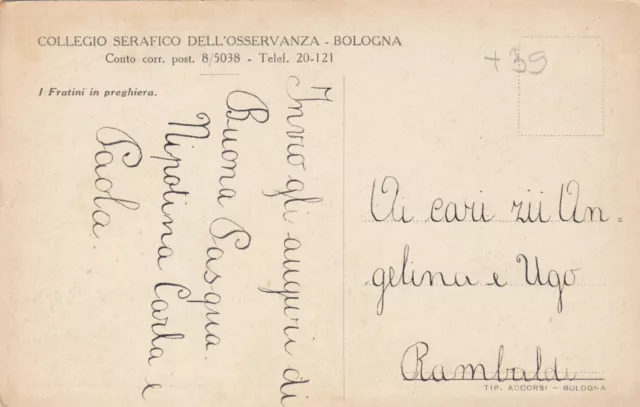 COLLEGIO SERAFICO DELL'OSSERVANZA - BOLOGNA
Conto corr. post. 8/5038 - Telef. 20-121
I Fratini in preghiera.
+ 39
Invio gli auguri di
Buona Pasqua.
Nipotina Carla e
Paola.
Ai cari zii An-
gelina e Ugo
Rambaldi
TIP. ACCORSI - BOLOGNA